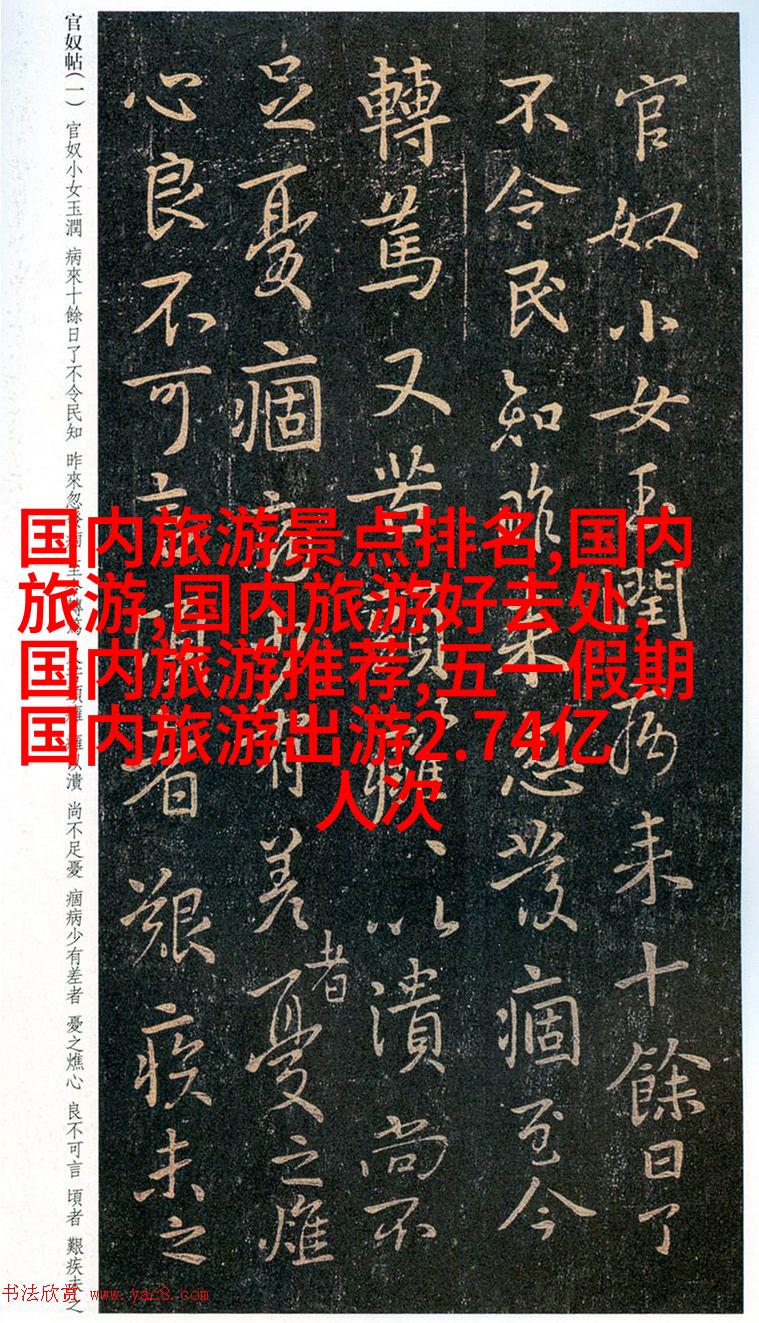 官奴小女玉潤病来十餘日了
不令民知昨来忽發痼至今
轉篤又苦頭癰、以潰尚不
足憂痼病少有差者憂之燋
心良不可言頃者艱疾未之
官奴帖(一) 官奴小女玉潤 病來十餘日了不令民知 昨來忽發痼至今轉篤 又苦頭癰 癰以潰 尚不足憂 痼病少有差者 憂之燋心 良不可言 頃者 艱疾未之
国内旅游景点排名,国内
旅游,国内旅游好去处,
国内旅游推荐,五一假期
国内旅游出游2.74亿
人次
书法欣赏 www.yac8.com